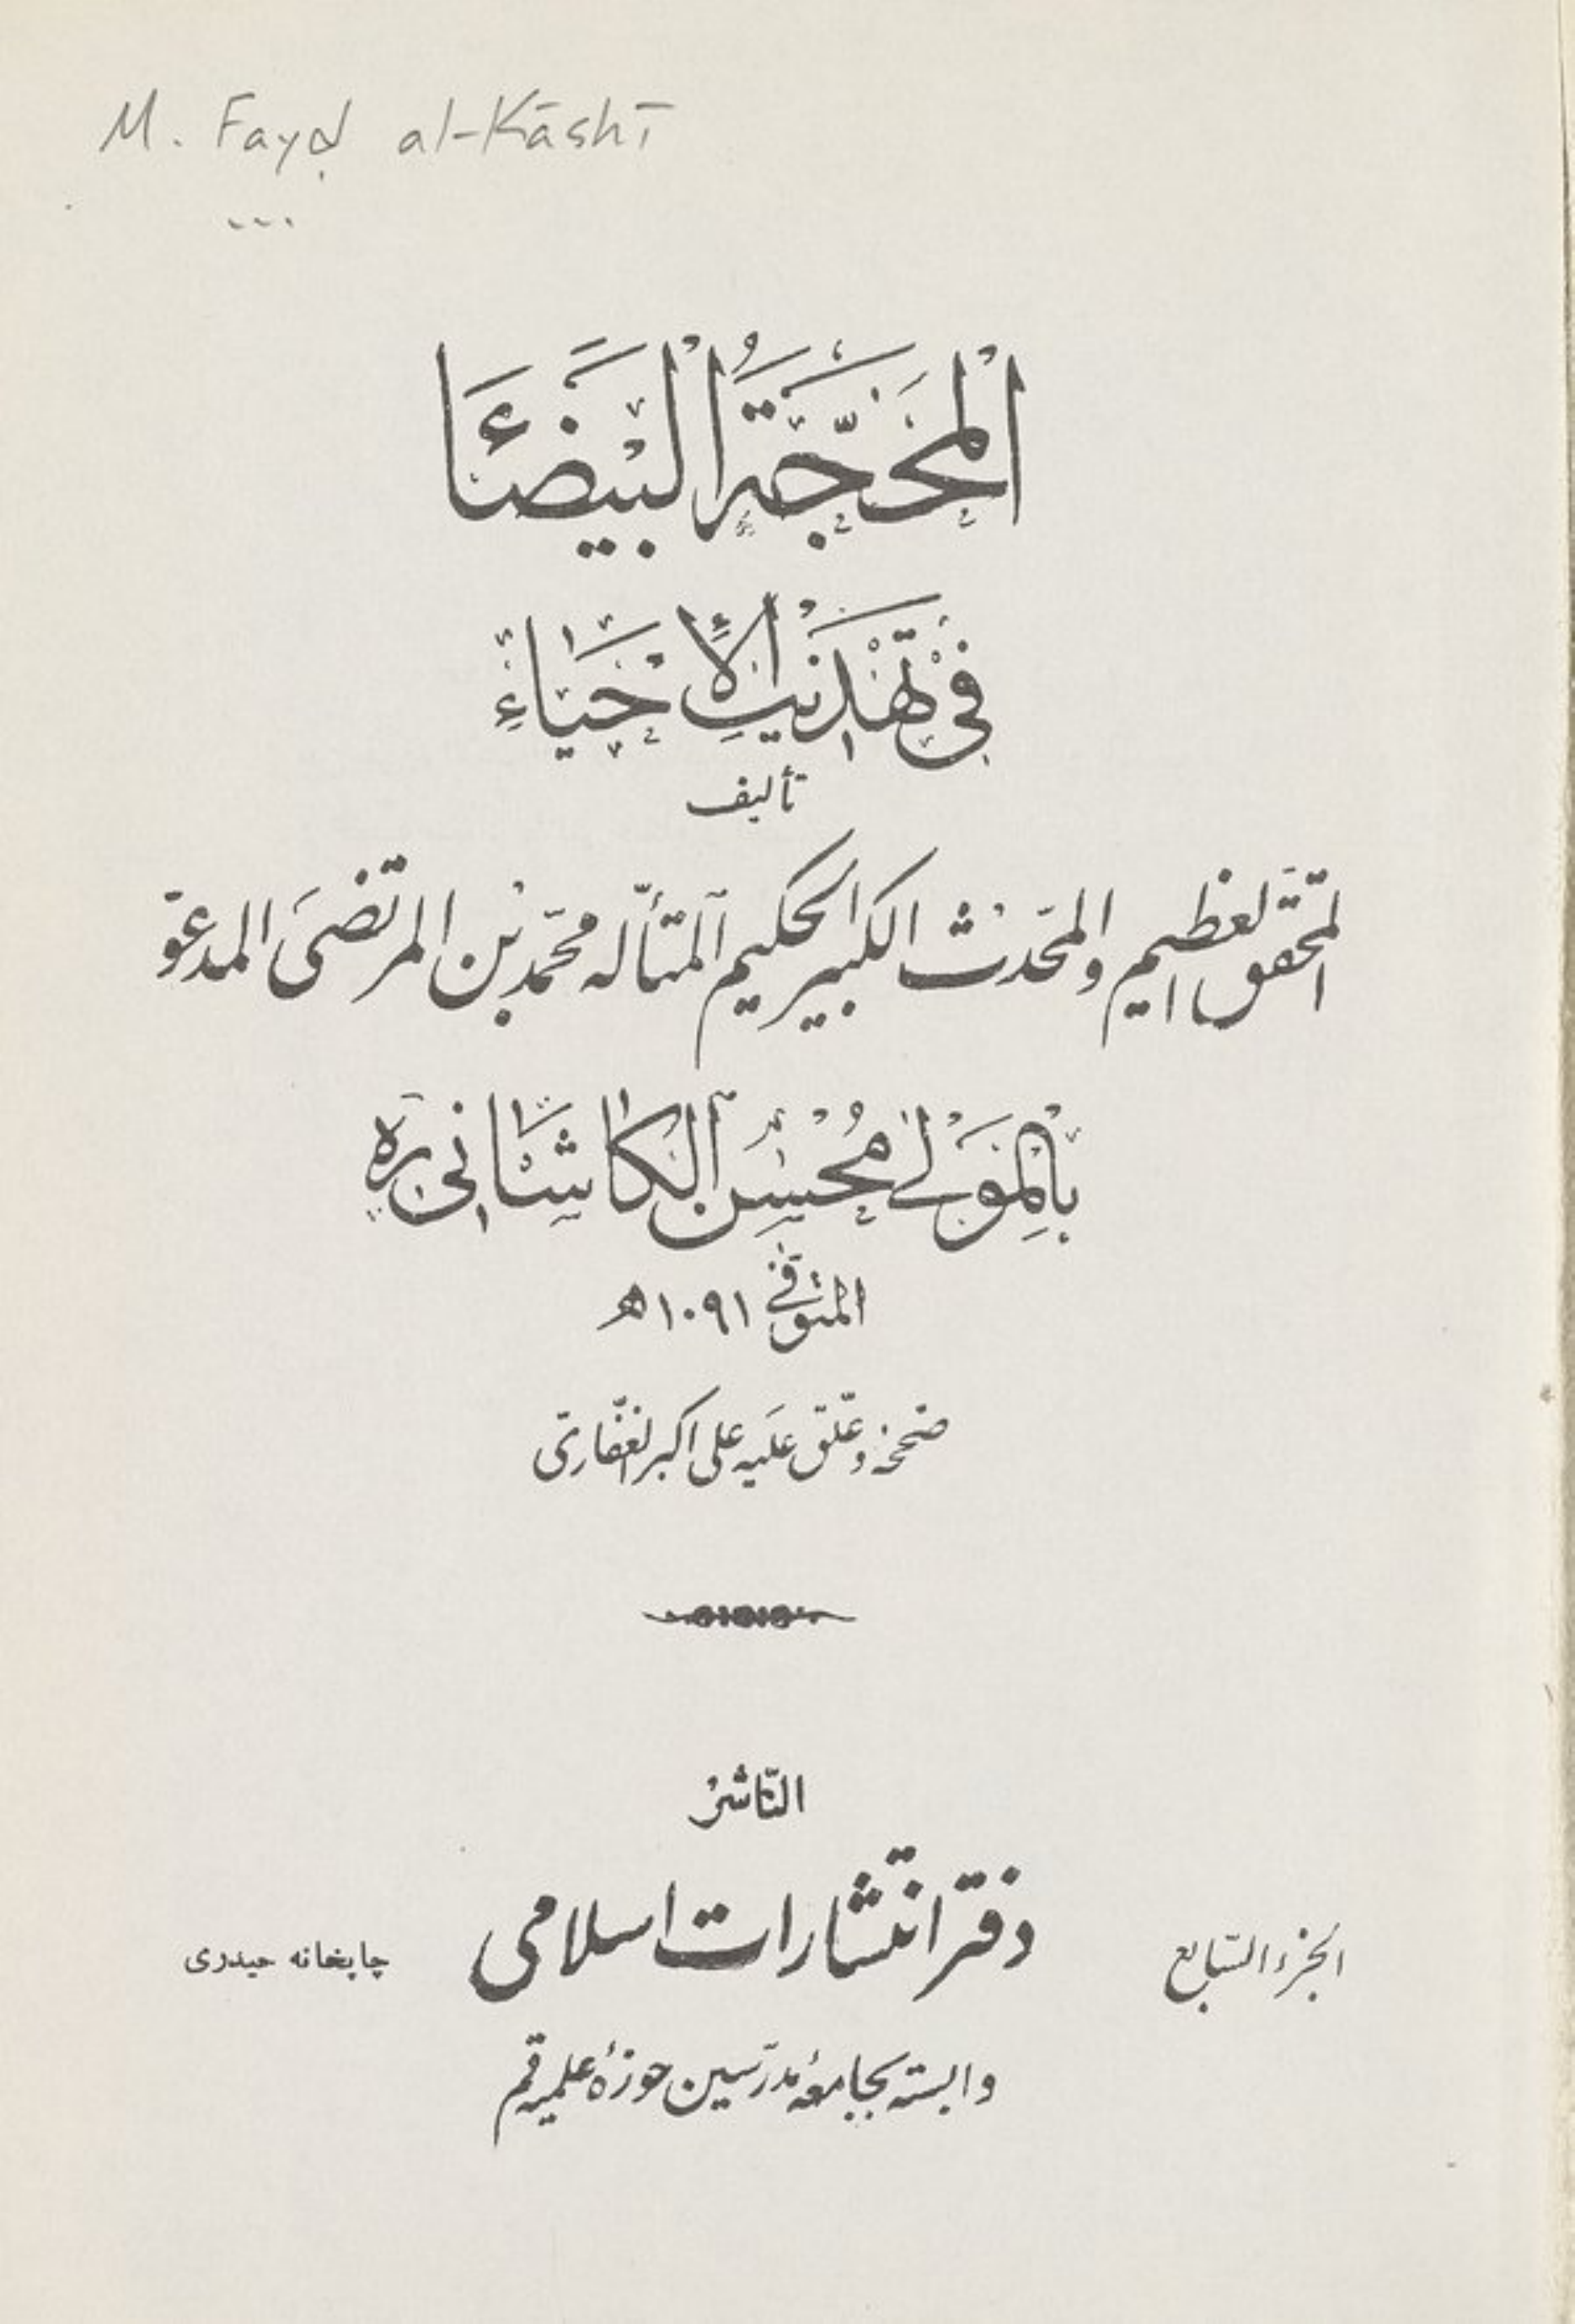 M. Fayḍ al-Kāshī
المحجة البيضاء
في تهذيب الإحياء
تأليف
المحقق العظيم والمحدث الكبير الحكيم المتأله محمد بن المرتضى المدعو
بالمولى محسن الكاشاني ره
المتوفى ١٠٩١ ه
صححه وعلق عليه علي اكبر الغفاري
الناشر
دفتر انتشارات اسلامی
الجزء السابع
چاپخانه حیدری
وابسته بجامعهٔ مدرسین حوزهٔ علمیه قم